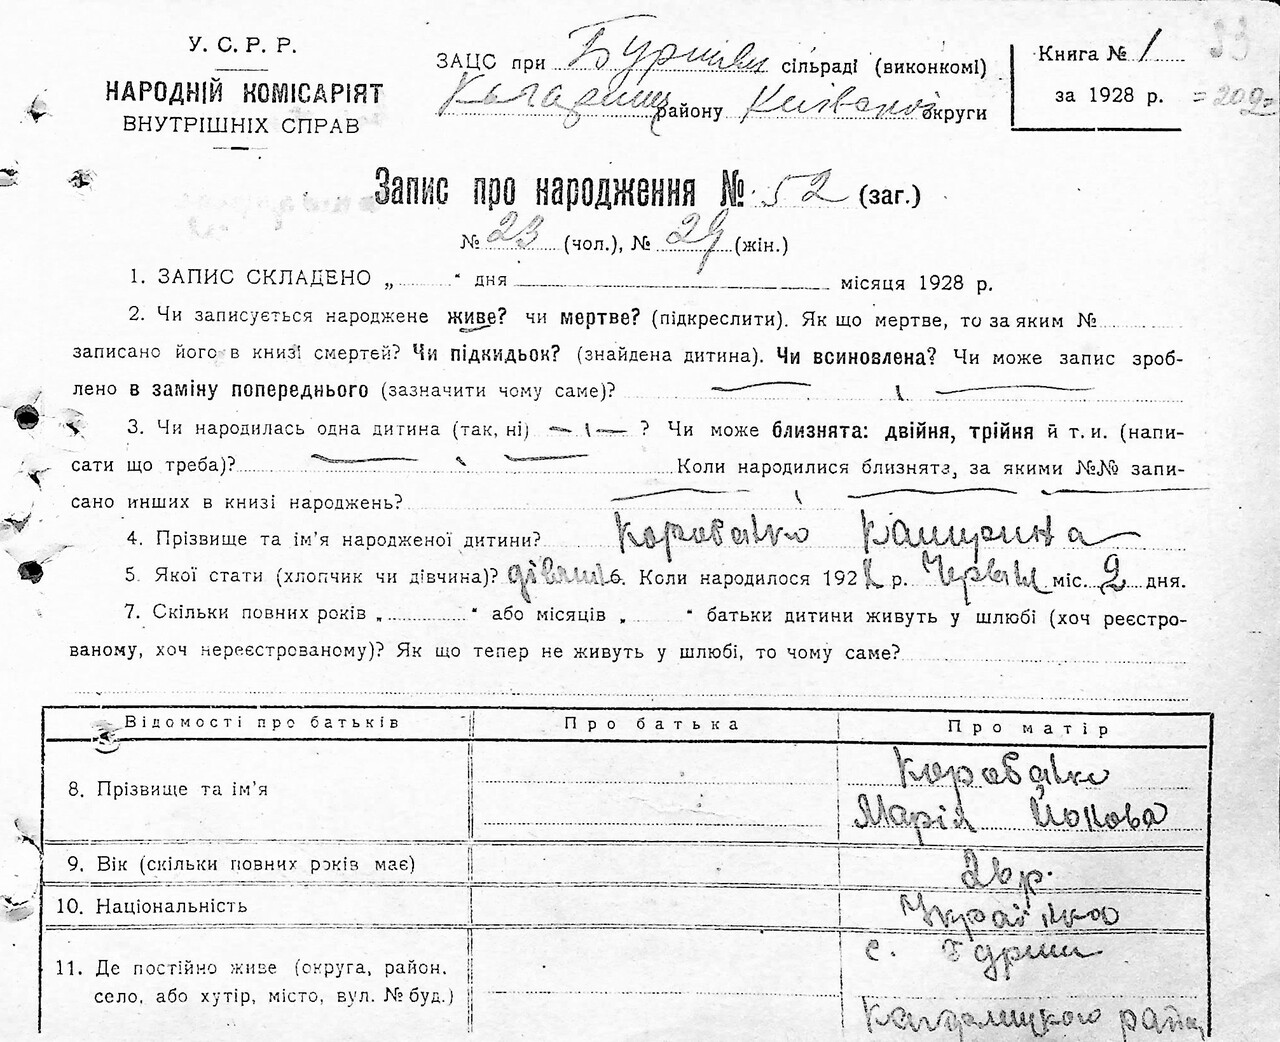 У. С. Р. Р.
НАРОДНІЙ КОМІСАРІЯТ
ВНУТРІШНІХ СПРАВ
ЗАЦС при сільраді (виконкомі)
району округи
Книга № 1
за 1928 р.
= 209 =
Запис про народження № 52 (заг.)
№ 23 (чол.), № 29 (жін.)
1. ЗАПИС СКЛАДЕНО „ “ дня місяця 1928 р.
2. Чи записується народжене живе? чи мертве? (підкреслити). Як що мертве, то за яким №
записано його в книзі смертей? Чи підкидьок? (знайдена дитина). Чи всиновлена? Чи може запис зроб-
лено в заміну попереднього (зазначити чому саме)?
3. Чи народилась одна дитина (так, ні) ? Чи може близнята: двійня, трійня й т. и. (напи-
сати що треба)? Коли народилися близнята, за якими №№ запи-
сано инших в книзі народжень?
4. Прізвище та ім'я народженої дитини? Коровайко
5. Якої стати (хлопчик чи дівчина)? 6. Коли народилося 192 р. міс. 2 дня.
7. Скільки повних років „ “ або місяців „ “ батьки дитини живуть у шлюбі (хоч реєстро-
ваному, хоч нереєстрованому)? Як що тепер не живуть у шлюбі, то чому саме?
Відомості про батьків Про батька Про матір
8. Прізвище та ім'я Коровайко
Марія
9. Вік (скільки повних років має)
10. Національність Українка
11. Де постійно живе (округа, район, с.
село, або хутір, місто, вул. № буд.) Кагарлицкого